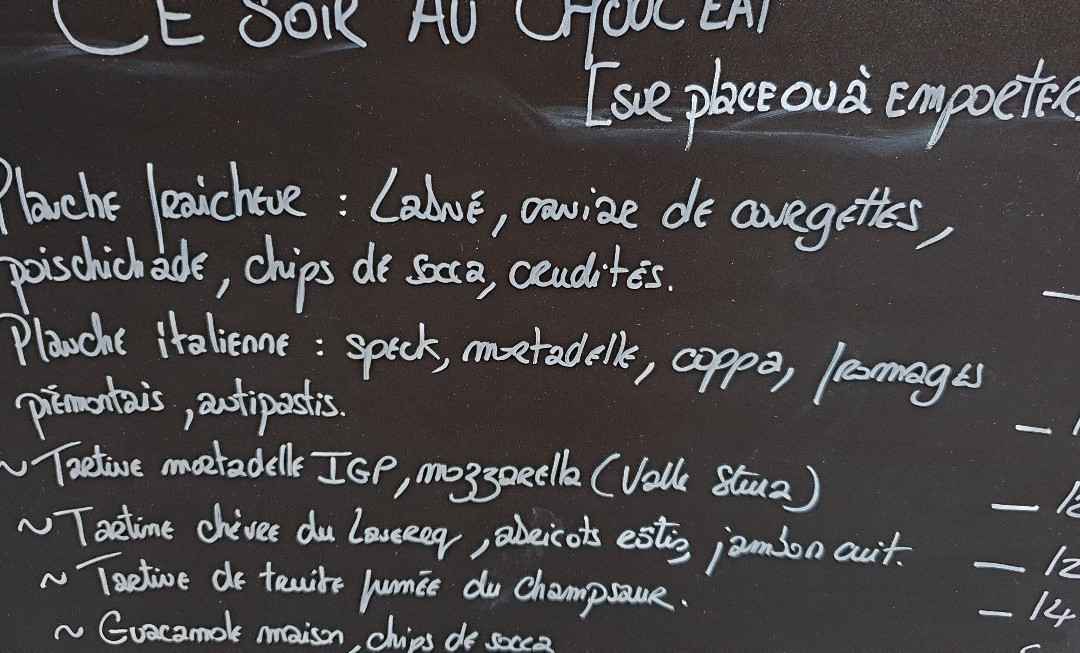 CE SOIR AU CHOUC EAT
[sur place ou à emporter
Planche fraicheur : Labné, caviar de courgettes,
poischichade, chips de socca, crudités.
Planche italienne : speck, mortadelle, coppa, fromages
piémontais, antipastis. —
~ Tartine mortadelle IGP, mozzarella (Valle Stura) —
~ Tartine chèvre du Laverq, abricots rôtis, jambon cuit. — 12
~ Tartine de truite fumée du Champsaur. — 14
~ Guacamole maison, chips de socca